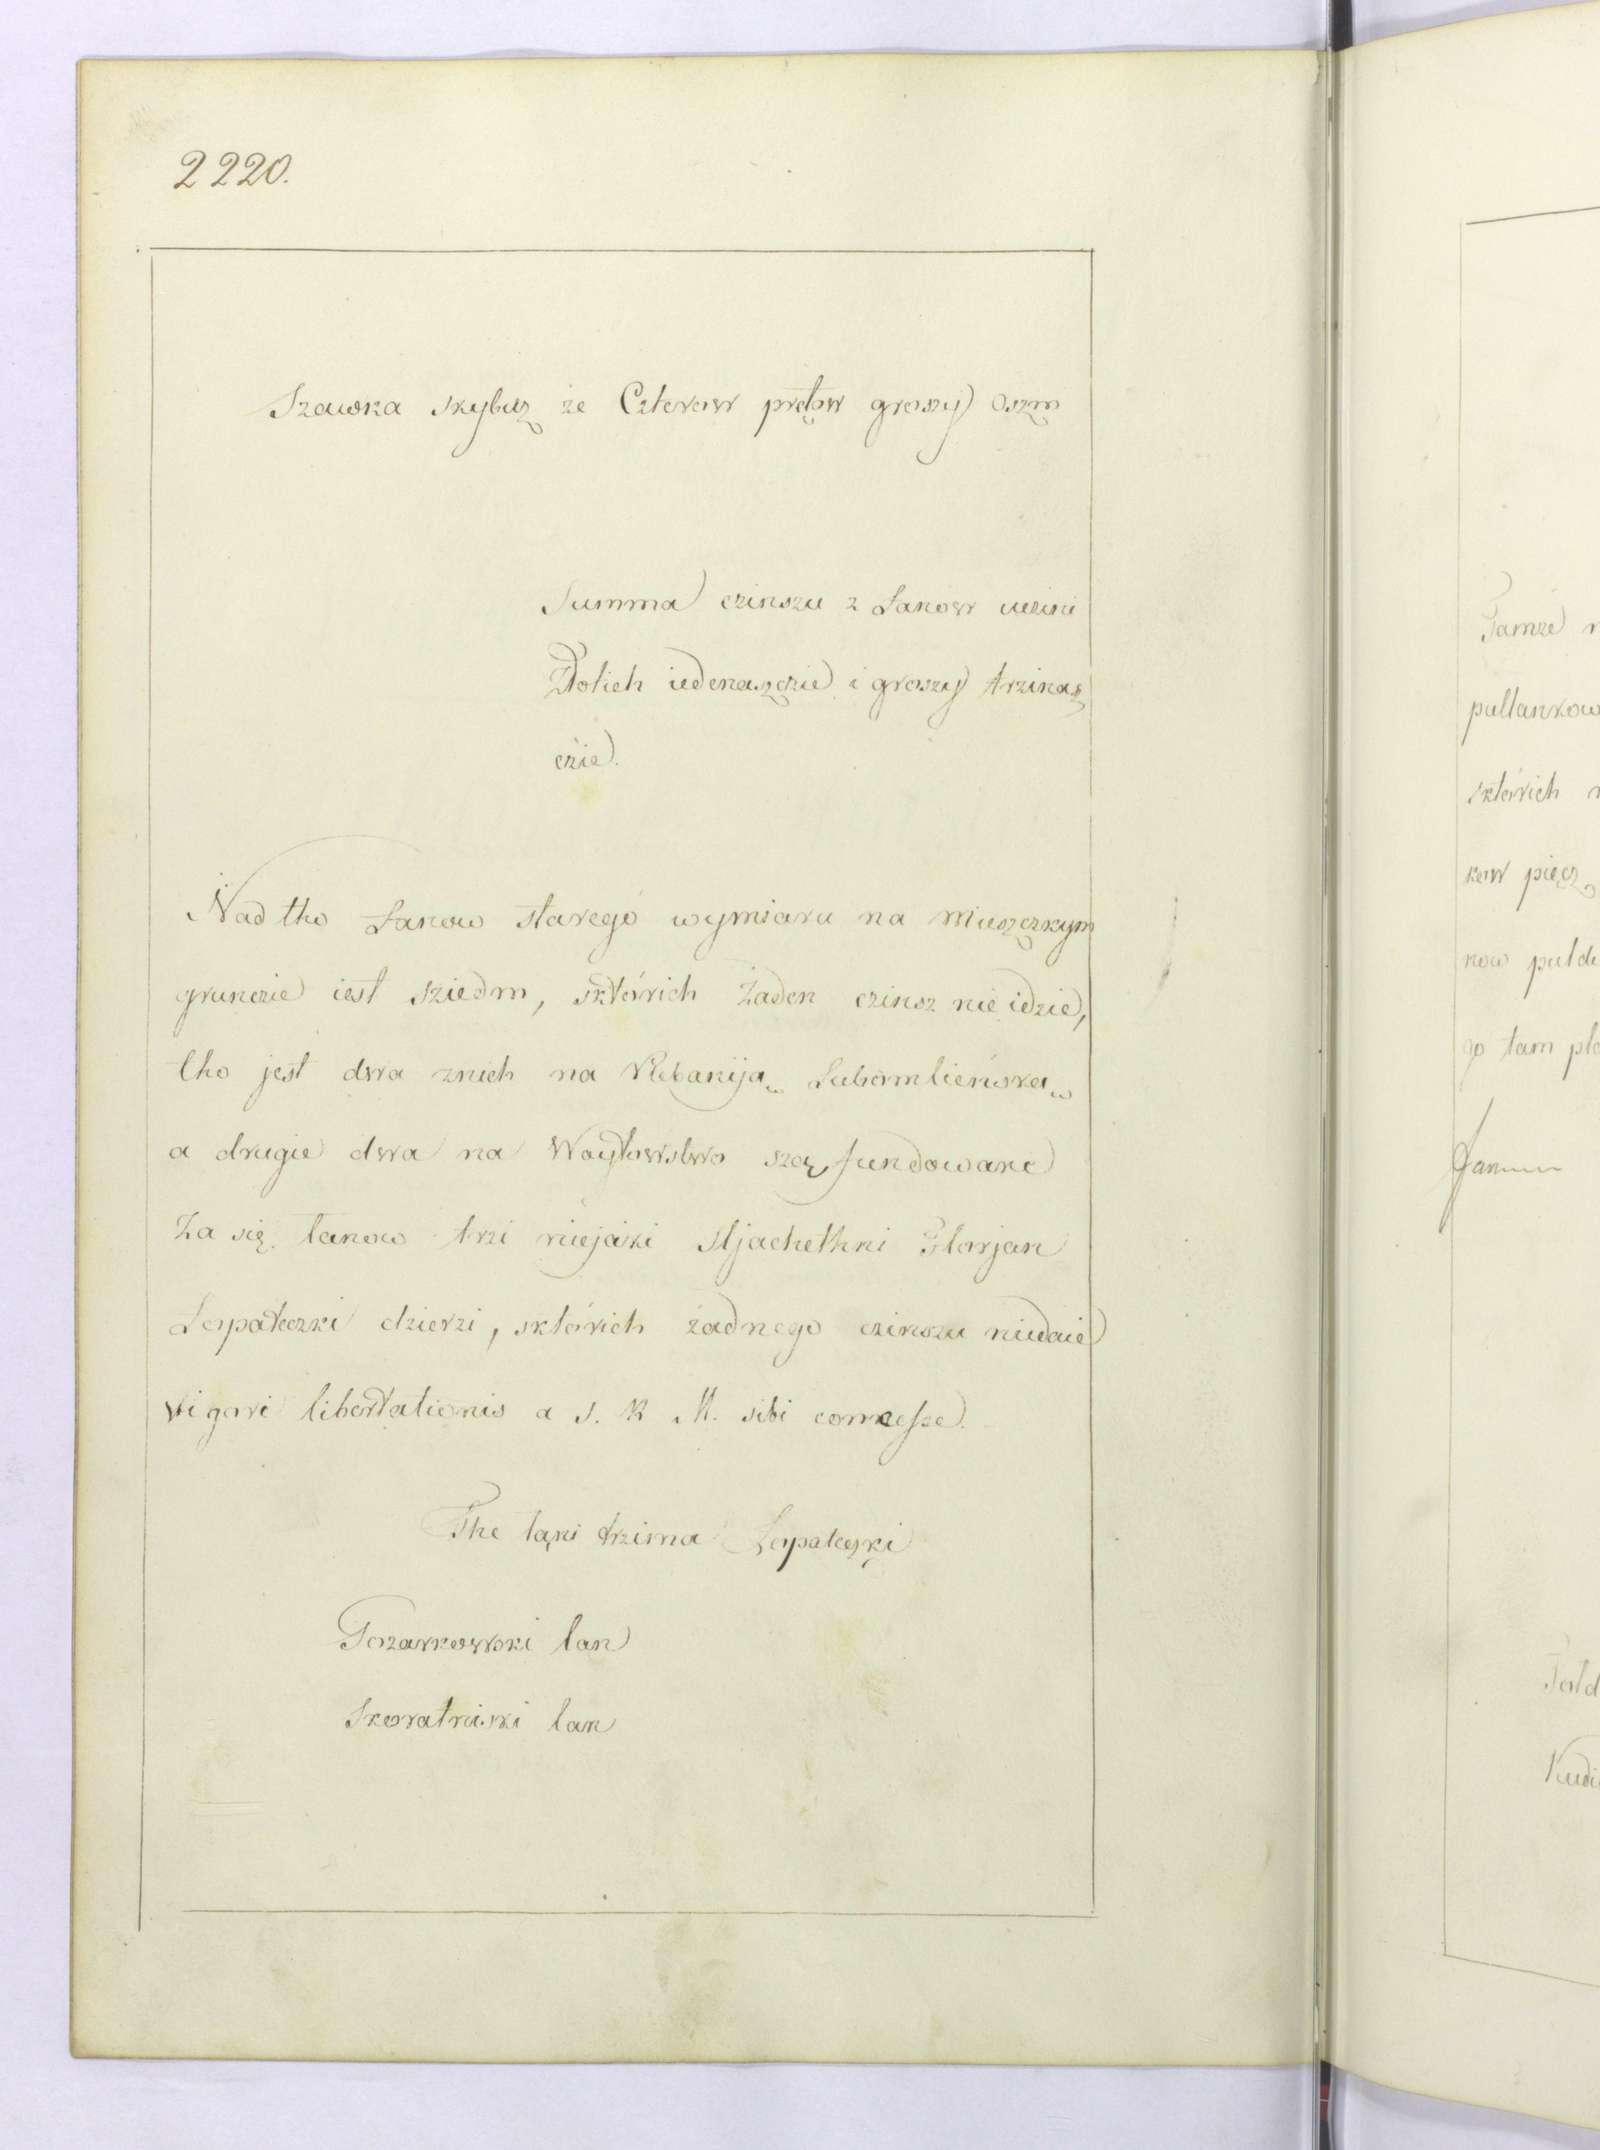 2220.
Szawka skybicz ze Czterow prętow groszy Oszm
Summa czinszu z Lanow uczini
Złotich iedenaszczie i groszy trzinasz
czie.
Nad tho Lanow starego wymiaru na Mieszczkym
gruncie iest sziedm, sktórich Żaden czinsz nie idzie,
tho jest dwa znich na Plebanija Lubomlieńska
a drugie dwa na Woytowstwo szą fundowane
Za się lanow trzi niejaki Sljachethni Florjan
Lopateczki dzierzi, sktórich żadnego czinszu niedaie
vigore libertationis a S. R M. sibi concessze.
The łąki trzima Lopateczki
Tozarkowski lan
Skoratniski lan
Tamże
pullankow
sktórich
kow pięcz
now
go tam